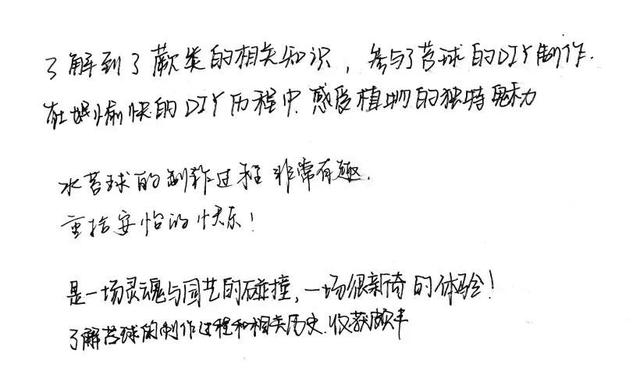 了解到了蕨类的相关知识，参与了苔球的DIY制作.
在愉快的DIY历程中，感受植物的独特魅力
水苔球的制作过程非常有趣.
重拾安怡的快乐！
是一场灵魂与园艺的碰撞，一场很新奇的体验！
了解苔球的制作过程和相关历史.收获颇丰